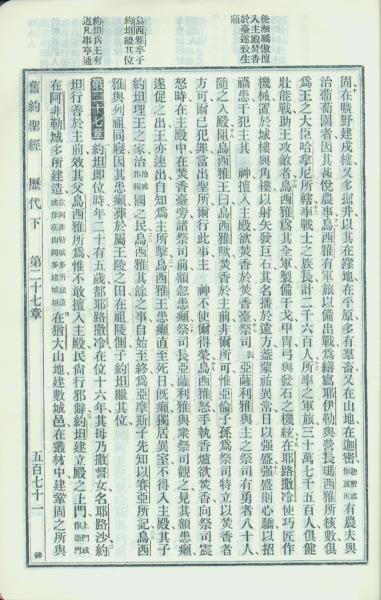 後漸驕傲擅
入主殿焚香
於臺遂致生
癩
烏西雅卒子
約坦繼其位
約坦爲王有
道凡事亨通
固、在曠野建戍樓、又多掘井、以其在窪地、在平原、多有羣畜、又在山地、在迦密、有農夫與
治葡萄園者、因其甚悅農事、烏西雅有軍旅、以備出戰、爲繕寫耶伊勒與營長瑪西雅所核數、俱
爲王之大臣哈拿尼所轄、率戰士之族長、計二千六百人、所率之軍旅、三十萬七千五百人、俱健
壯能戰、助王攻敵者、烏西雅爲其全軍製備干戈甲冑弓與發石之機絃、在耶路撒冷使巧匠作
機械、置於城樓與角樓、以射矢發巨石、其名播於遠方、蓋蒙祐異常、日以強盛、強盛則心驕以招
禍患、干犯主其 神、擅入主殿、欲焚香於焚香臺、祭司亞薩利雅、與主之祭司有勇者八十人、
隨之入殿、阻烏西雅王曰、烏西雅歟、焚香於主前、非爾所可、惟亞倫子孫爲祭司特立以焚香者
方可、爾已犯罪、當出聖所、爾行此事、主 神不使爾得榮、烏西雅怒、手執香爐欲焚香、向祭司震
怒時、在主殿中在焚香臺旁、諸祭司前、額忽患癩、祭司長亞薩利雅與衆祭司觀之、見其額患癩、
遂促之出、王亦速出、自知爲主所擊、烏西雅王患癩直至死日、既癩、獨居異室、不得入主殿、其子
約坦理王之家、治國之民、烏西雅其餘之事、自始至終、爲亞摩斯子先知以賽亞所記、烏西
雅與列祖同寢、因其患癩、葬於屬王陵之田、在祖陵側、子約坦繼其位、
第二十七章 約坦即位時、年二十有五歲、都耶路撒冷、在位十六年、其母乃撒督女、名耶路沙、約
坦行善於主前、效其父烏西雅所爲、惟不敢擅入主殿、民尚行邪僻、約坦建立殿之上門、
在阿非勒城多所建造、在猶大山地建數城邑、在叢林中建鞏固之所與
舊約聖經 歷代下 第二十七章 五百七十一